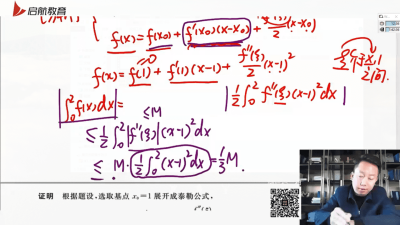 启航教育
f(x)=f(x₀)+f'(x₀)(x-x₀)+f''(ξ)/2 (x-x₀)²
f(x)=f(1)+f'(1)(x-1)+f''(ξ)/2 (x-1)²
|∫₀² f(x)dx| = |1/2 ∫₀² f''(ξ)(x-1)²dx|
≤M
≤ 1/2 ∫₀² |f''(ξ)|(x-1)²dx
≤ M · 1/2 ∫₀² (x-1)²dx = 1/3 M
证明 根据题设,选取基点 x₀=1 展开成泰勒公式,